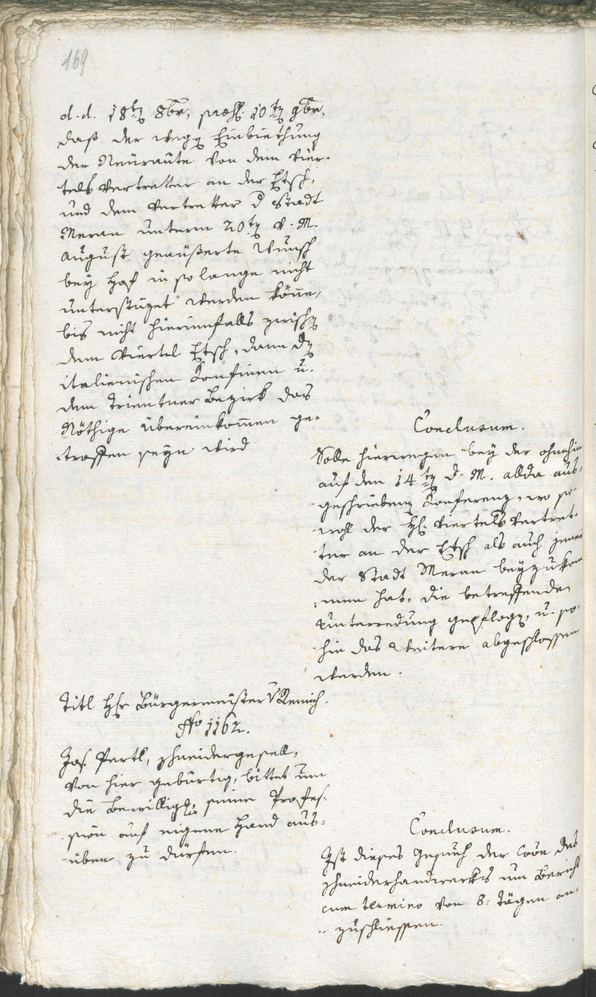 169
d. d. 18t 8br, praes. 10t 9br,
daß der wegen Einbiethung
der Neuraute von dem Vier-
tels Vertretter an der Etsch,
und dem Vertretter d Stadt
Meran unterm 20t v. M.
August geäusserte Wunsch
bey Hof in so lange nicht
unterstüzet werden könne,
bis nicht hierinnfalls zwischen
dem Viertel Etsch, dann den
italienischen Confinen u.
dem Trientner Bezirk das
Nöthige übereinkommen ge-
troffen seyn wird
Conclusum.
Solle hierwegen bey der ohnehin
auf den 14t d. M. allda aus-
geschriebenen Conferenz, wo so-
wohl der H. Viertels Vertret-
ter an der Etsch als auch jener
der Stadt Meran beyzukom-
men hat, die betreffende
Unterredung gepflogen, u. so-
hin das Weitere abgeschlossen
werden.
Titl Hr Bürgermeister v Remich.
No 1162.
Jos Partl, Schneidergesell,
von hier gebürtig, bittet um
die Bewilligung, seine Profes-
sion auf eigene Hand aus-
üben zu dürfen.
Conclusum.
Ist dieses Gesuch der Com̃ des
Schneiderhandwerks um Bericht
cum termino von 8: Tägen an-
zuschliessen.